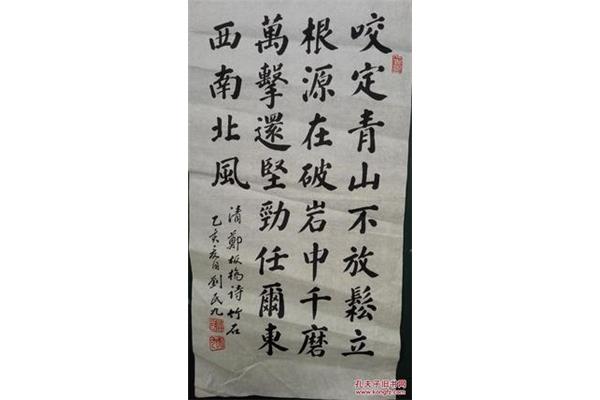 咬定青山不放鬆立
根源在破岩中千磨
萬擊還堅勁任爾東
西南北風
清鄭板橋詩竹石
乙亥亥月劉民九
孔夫子旧书网
www.kongfz.com